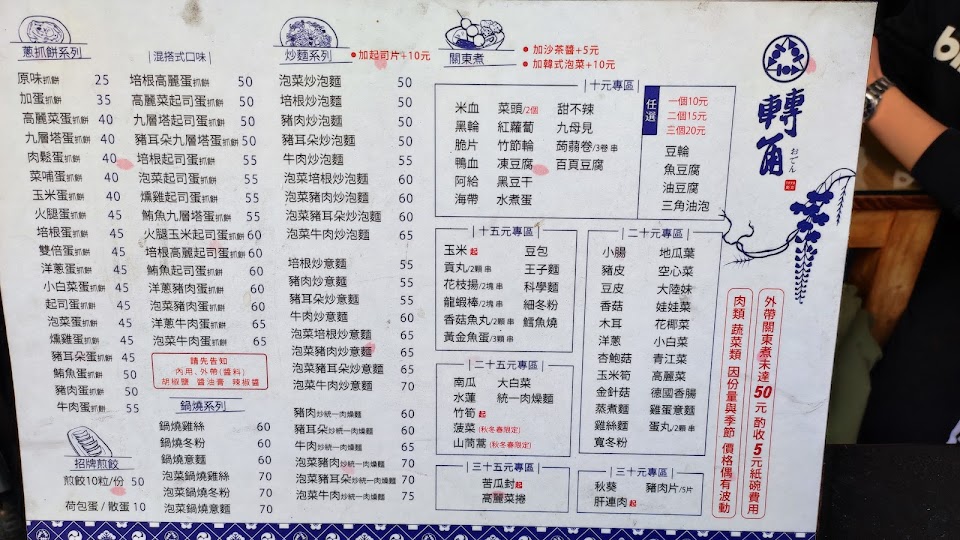 蔥抓餅系列
原味抓餅 25
加蛋抓餅 35
高麗菜蛋抓餅 40
九層塔蛋抓餅 40
肉鬆蛋抓餅 40
菜哺蛋抓餅 40
玉米蛋抓餅 40
火腿蛋抓餅 45
培根蛋抓餅 45
雙倍蛋抓餅 45
洋蔥蛋抓餅 45
小白菜蛋抓餅 45
起司蛋抓餅 45
泡菜蛋抓餅 45
燻雞蛋抓餅 45
豬耳朵蛋抓餅 45
鮪魚蛋抓餅 50
豬肉蛋抓餅 50
牛肉蛋抓餅 55
招牌煎餃
煎餃10粒/份 50
荷包蛋/散蛋 10
|混搭式口味|
培根高麗蛋抓餅 50
高麗菜起司蛋抓餅 50
九層塔起司蛋抓餅 50
豬耳朵九層塔蛋抓餅 50
培根起司蛋抓餅 55
泡菜起司蛋抓餅 55
燻雞起司蛋抓餅 55
鮪魚九層塔蛋抓餅 55
火腿玉米起司蛋抓餅 55
培根高麗起司蛋抓餅 60
鮪魚起司蛋抓餅 60
洋蔥豬肉蛋抓餅 60
泡菜豬肉蛋抓餅 60
洋蔥牛肉蛋抓餅 65
泡菜牛肉蛋抓餅 65
請先告知
內用、外帶(醬料)
胡椒鹽 醬油膏 辣椒醬
鍋燒系列
鍋燒雞絲 60
鍋燒冬粉 60
鍋燒意麵 60
泡菜鍋燒雞絲 70
泡菜鍋燒冬粉 70
泡菜鍋燒意麵 70
炒麵系列
●加起司片+10元
泡菜炒泡麵 50
培根炒泡麵 50
豬肉炒泡麵 50
豬耳朵炒泡麵 50
牛肉炒泡麵 55
泡菜培根炒泡麵 60
泡菜豬肉炒泡麵 60
泡菜豬耳朵炒泡麵 60
泡菜牛肉炒泡麵 65
培根炒意麵 55
豬肉炒意麵 55
豬耳朵炒意麵 55
牛肉炒意麵 60
泡菜培根炒意麵 65
泡菜豬肉炒意麵 65
泡菜豬耳朵炒意麵 65
泡菜牛肉炒意麵 70
豬肉炒統一肉燥麵 60
豬耳朵炒統一肉燥麵 60
牛肉炒統一肉燥麵 65
泡菜豬肉炒統一肉燥麵 70
泡菜豬耳朵炒統一肉燥麵 70
泡菜牛肉炒統一肉燥麵 75
關東煮
●加沙茶醬+5元
●加韓式泡菜+10元
|十元專區|
米血 菜頭/2個 甜不辣
黑輪 紅蘿蔔 九母見
脆片 竹節輪 蒟蒻卷/3卷 串
鴨血 凍豆腐 百頁豆腐
阿給 黑豆干
海帶 水煮蛋
任選
一個10元
二個15元
三個20元
豆輪
魚豆腐
油豆腐
三角油泡
|十五元專區|
玉米起 豆包
貢丸/2顆 串 王子麵
花枝揚/2塊 串 科學麵
龍蝦棒/2塊 串 細冬粉
香菇魚丸/2顆 串 鱈魚燒
黃金魚蛋/3顆 串
|二十元專區|
小腸 地瓜葉
豬皮 空心菜
豆皮 大陸妹
香菇 娃娃菜
木耳 花椰菜
洋蔥 小白菜
杏鮑菇 青江菜
玉米筍 高麗菜
金針菇 德國香腸
蒸煮麵 雞蛋意麵
雞絲麵 蛋丸/2顆 串
寬冬粉
|二十五元專區|
南瓜 大白菜
水蓮 統一肉燥麵
竹筍起
菠菜(秋冬春限定)
山茼蒿(秋冬春限定)
|三十五元專區|
苦瓜封起
高麗菜捲
|三十元專區|
秋葵 豬肉片/5片
肝連肉起
轉角
おでん
外帶關東煮未達50元 酌收5元紙碗費用
肉類 蔬菜類 因份量與季節 價格偶有波動